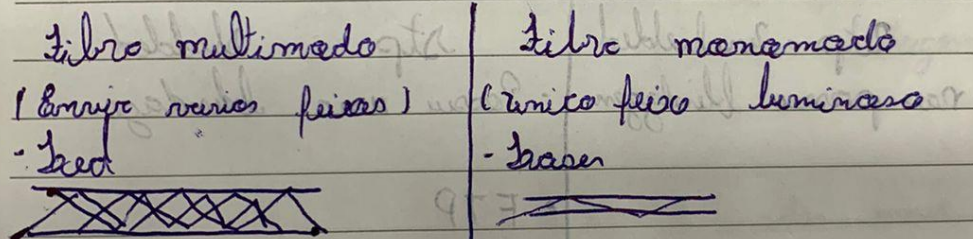 Fibra multimodo
(Envia varios feixes)
- Led
Fibra monomodo
(unico feixe luminoso
- Laser